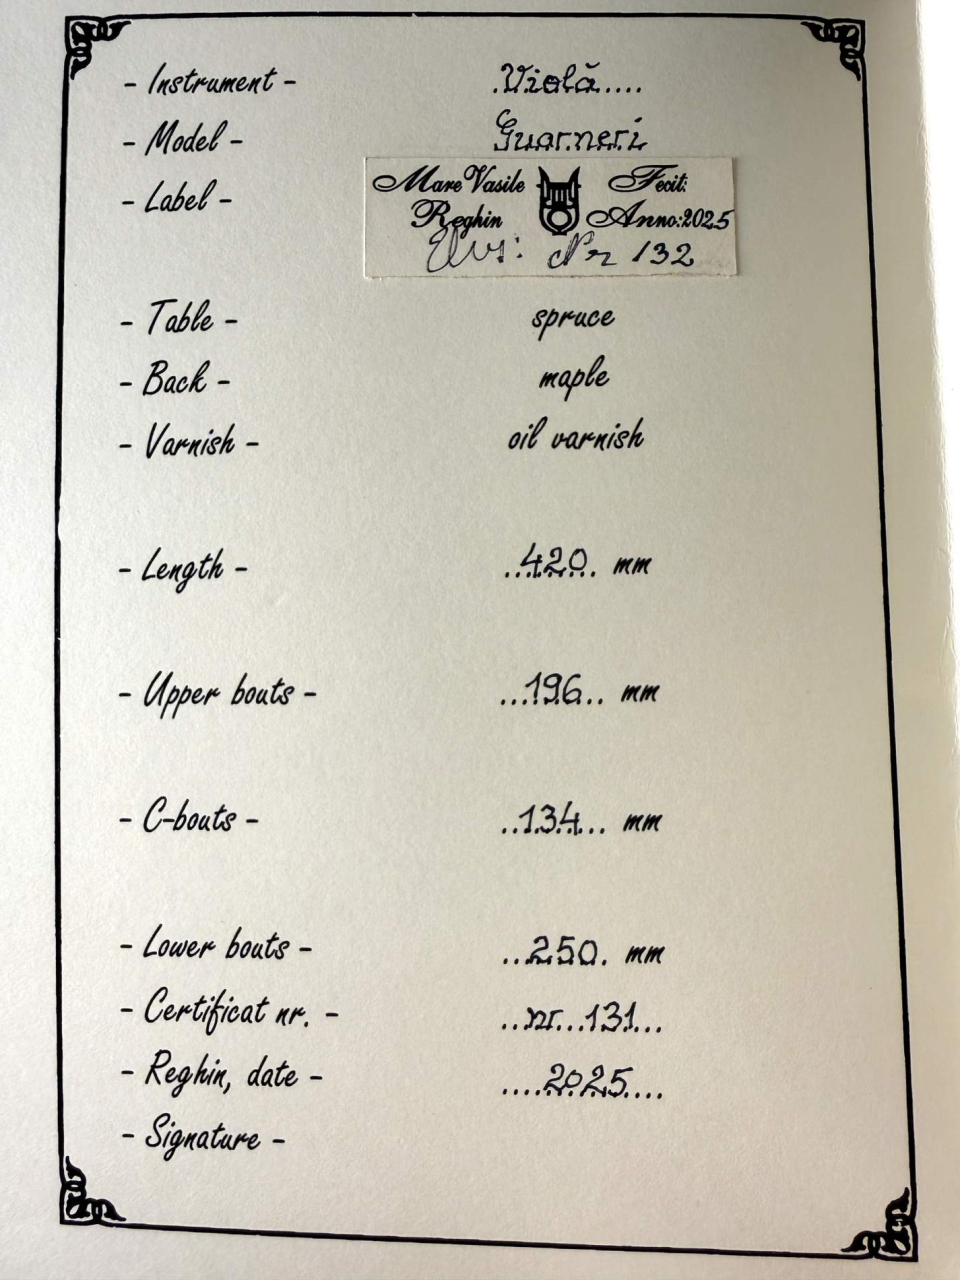 - Instrument - .Violă....
- Model - Guarneri
- Label -
Mare Vasile Fecit:
Reghin Anno:2025
Nr 132
- Table - spruce
- Back - maple
- Varnish - oil varnish
- Length - ...420.. mm
- Upper bouts - ...196.. mm
- C-bouts - ..134... mm
- Lower bouts - ..250. mm
- Certificat nr. - ..nr...131...
- Reghin, date - ....2025....
- Signature -